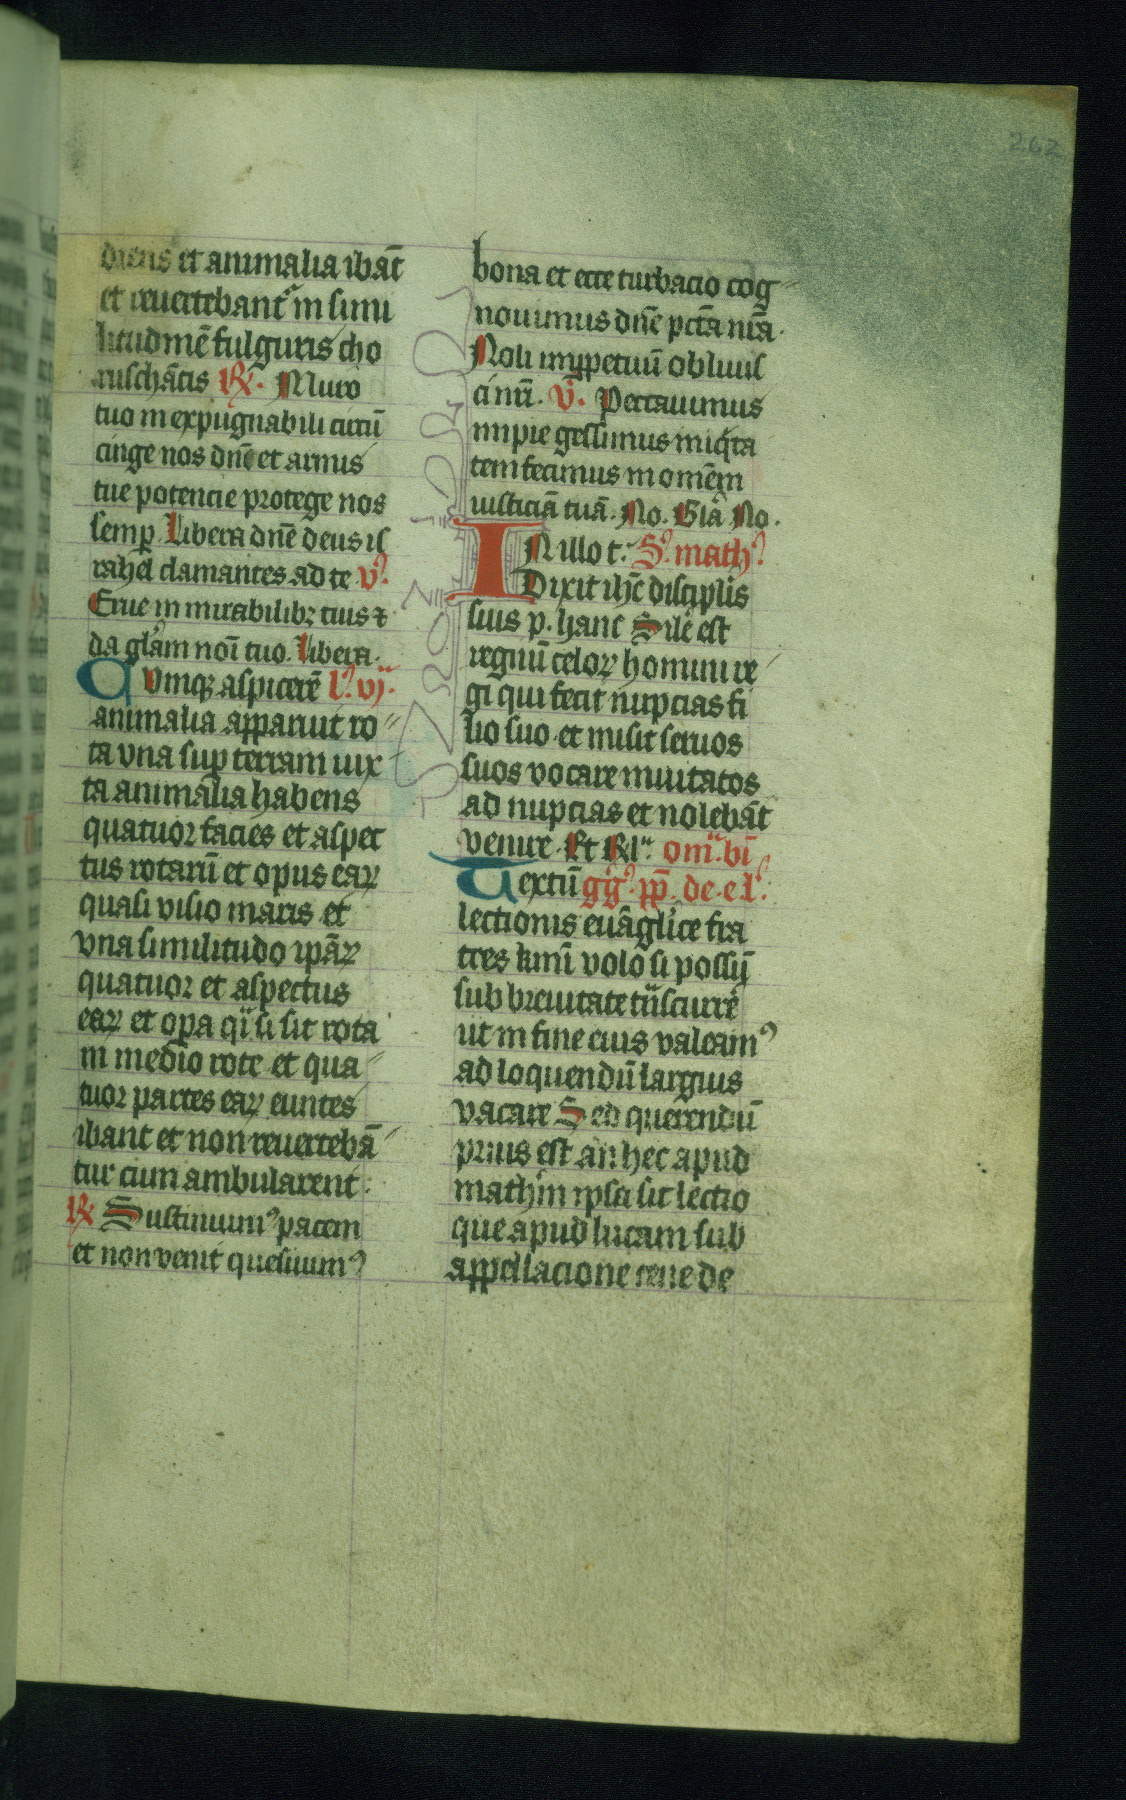 262
diens et animalia ibāt
et reuertebant᷑ in simi
litudinē fulguris cho
ruschātis ℟. Muro
tuo inexpugnabili circū
cinge nos dn̄e et armis
tue potencie protege nos
semꝑ. Libera dn̄e deus is
rahel clamantes ad te v̉.
Erue in mirabilibꝫ tuis ⁊
da gl̓am noī tuo. Libera.
Cumqꝫ aspicerē l̓. vij.
animalia apparuit ro
ta vna suꝑ terram iux
ta animalia habens
quatuor facies et aspec
tus rotarū et opus eaꝝ
quasi visio maris et
vna similitudo ipāꝝ
quatuor et aspectus
eaꝝ et oꝑa qͣsi sit rota
in medio rote et qua
tuor partes eaꝝ euntes
ibant et non reuertebā
tur cum ambularent.
℟ Sustinuimꝰ pacem
et non venit quesiuimꝰ
bona et ecce turbacio cog
nouimus dn̄e pctā nrā.
Noli inꝑpetuū obliuis
ci nrī. v̉. Peccauimus
impie gessimus iniqͥta
tem fecimus in omēm
iusticiā tuā. No. Gl̓a No.
IN illo t. S. math̓.
Dixit ih̄c discipl̓is
suis p. hanc Sil̓e est
regnū celoꝝ homini re
gi qui fecit nupcias fi
lio suo et misit seruos
suos vocare inuitatos
ad nupcias et nolebāt
venire. Et Rl̓. om̄. bī
Textū gg̓. pp̄. de. e. l̓.
lectionis euāgl̓ice fra
tres kmī volo si possū
sub breuitate tͣnscurrē
ut in fine eius valeamꝰ
ad loquendū largius
vacare Sed querendū
prius est an hec apud
math̓m ipsa sit lectio
que apud lucam sub
appellacione cene de